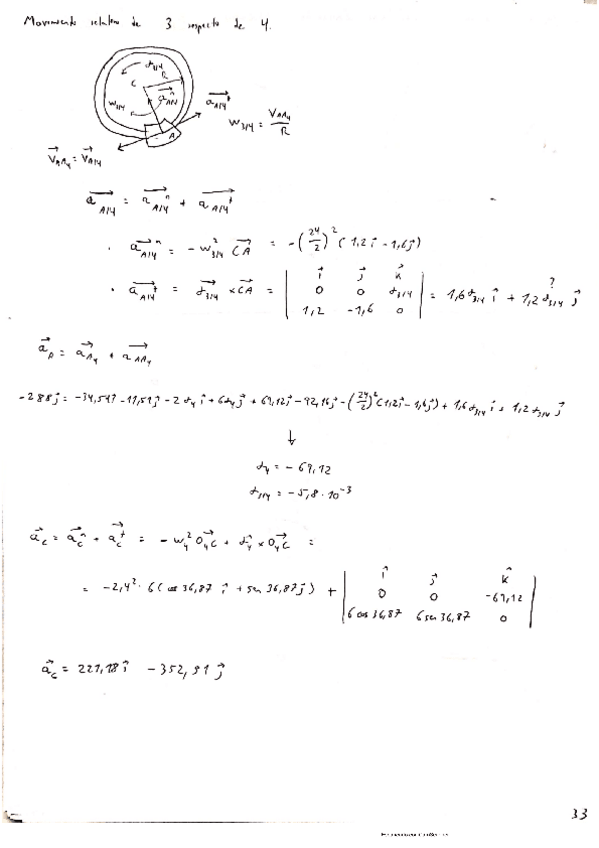 Movimiento relativo de 3 respecto de 4.
α3/4
R
C
aA/4^n
aA/4^t
ω3/4
A
ω3/4 = VAA4 / R
VAA4 = VA/4
aA/4 = aA/4^n + aA/4^t
· aA/4^n = -ω3/4^2 CA = -(24/2)^2 (1,2i - 1,6j)
· aA/4^t = α3/4 × CA = | i j k | 0 0 α3/4 | 1,2 -1,6 0 | = 1,6α3/4 i + 1,2 α3/4 j
?
aA = aA4 + aAA4
-288j = -34,54i -11,51j -2α4 i + 6α4 j + 69,12i -92,16j -(24/2)^2 (1,2i - 1,6j) + 1,6α3/4 i + 1,2α3/4 j
↓
α4 = -69,12
α3/4 = -5,8 · 10^-3
ac = ac^n + ac^t = -ω4^2 O4C + α4 × O4C =
= -2,4^2 · 6(cos 36,87 i + sen 36,87j) + | i j k | 0 0 -69,12 | 6 cos 36,87 6 sen 36,87 0 |
ac = 221,18i - 352,91j
33